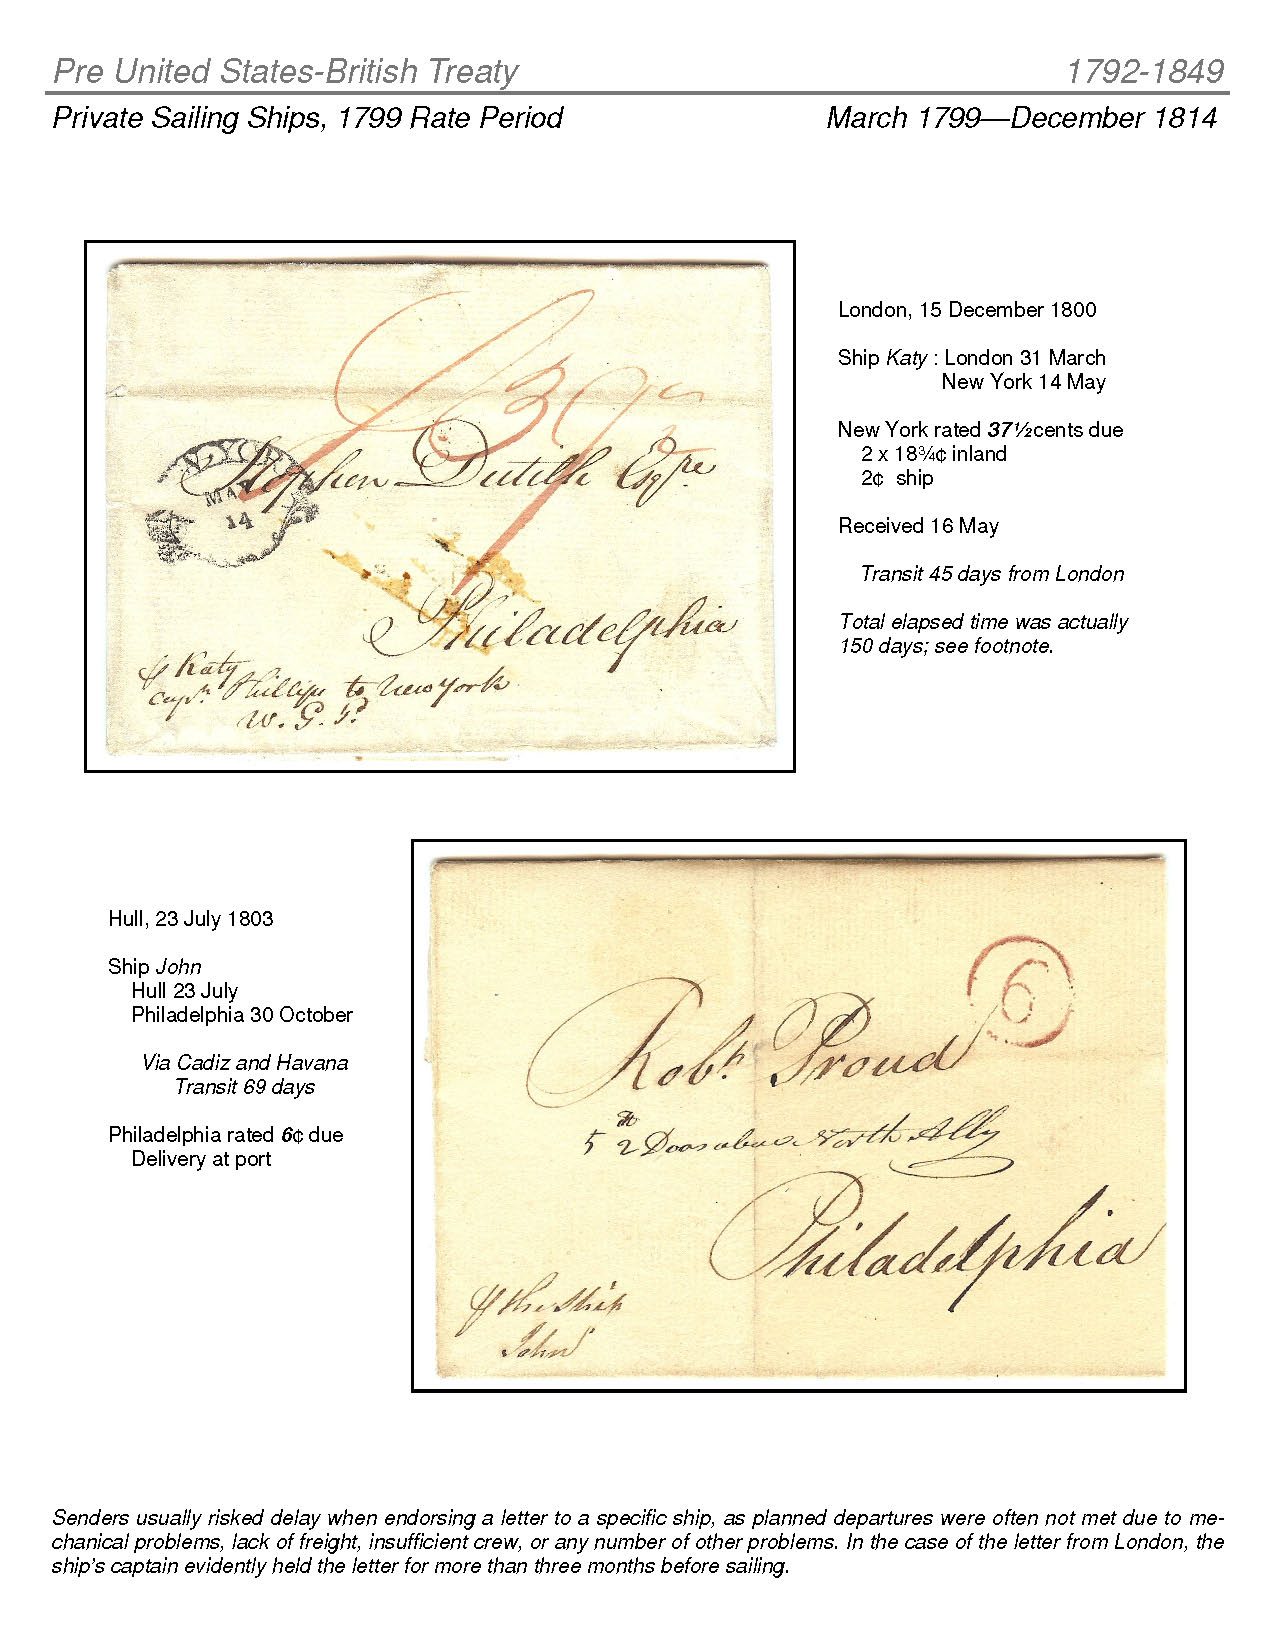 Pre United States-British Treaty 1792-1849
Private Sailing Ships, 1799 Rate Period March 1799—December 1814
London, 15 December 1800
Ship Katy : London 31 March
New York 14 May
New York rated 37½cents due
2 x 18¾¢ inland
2¢ ship
Received 16 May
Transit 45 days from London
Total elapsed time was actually
150 days; see footnote.
N. YORK
MAY
14
Stephen Dutilh Esqre
Philadelphia
Katy
Capn. Phillips to New York
W. G.
Hull, 23 July 1803
Ship John
Hull 23 July
Philadelphia 30 October
Via Cadiz and Havana
Transit 69 days
Philadelphia rated 6¢ due
Delivery at port
6
Robt. Proud
5 2 Doors above North Ally
Philadelphia
the Ship
John
Senders usually risked delay when endorsing a letter to a specific ship, as planned departures were often not met due to me-
chanical problems, lack of freight, insufficient crew, or any number of other problems. In the case of the letter from London, the
ship's captain evidently held the letter for more than three months before sailing.